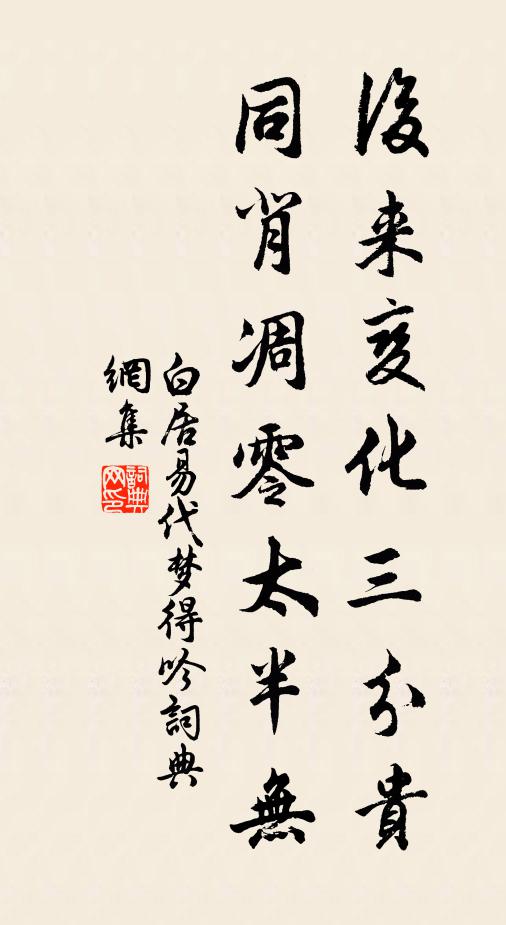 後来变化三分貴
同背凋零太半無
白居易代梦得吟詞典
網集
詞典
网印